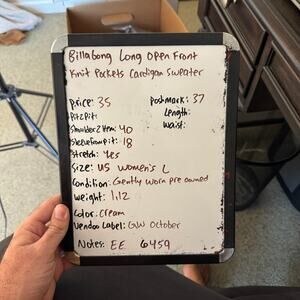 Billabong Long Open Front
Knit Pockets Cardigan Sweater
Price: 35 Postmark: 37
Pit2Pit: Length:
Shoulder2Hem: 40 Waist:
Sleevefrompit: 18
Stretch: Yes
Size: US Women's L
Condition: Gently Worn pre owned
Weight: 1.12
Color: Cream
Vendoo Label: GW October
Notes: EE 6459